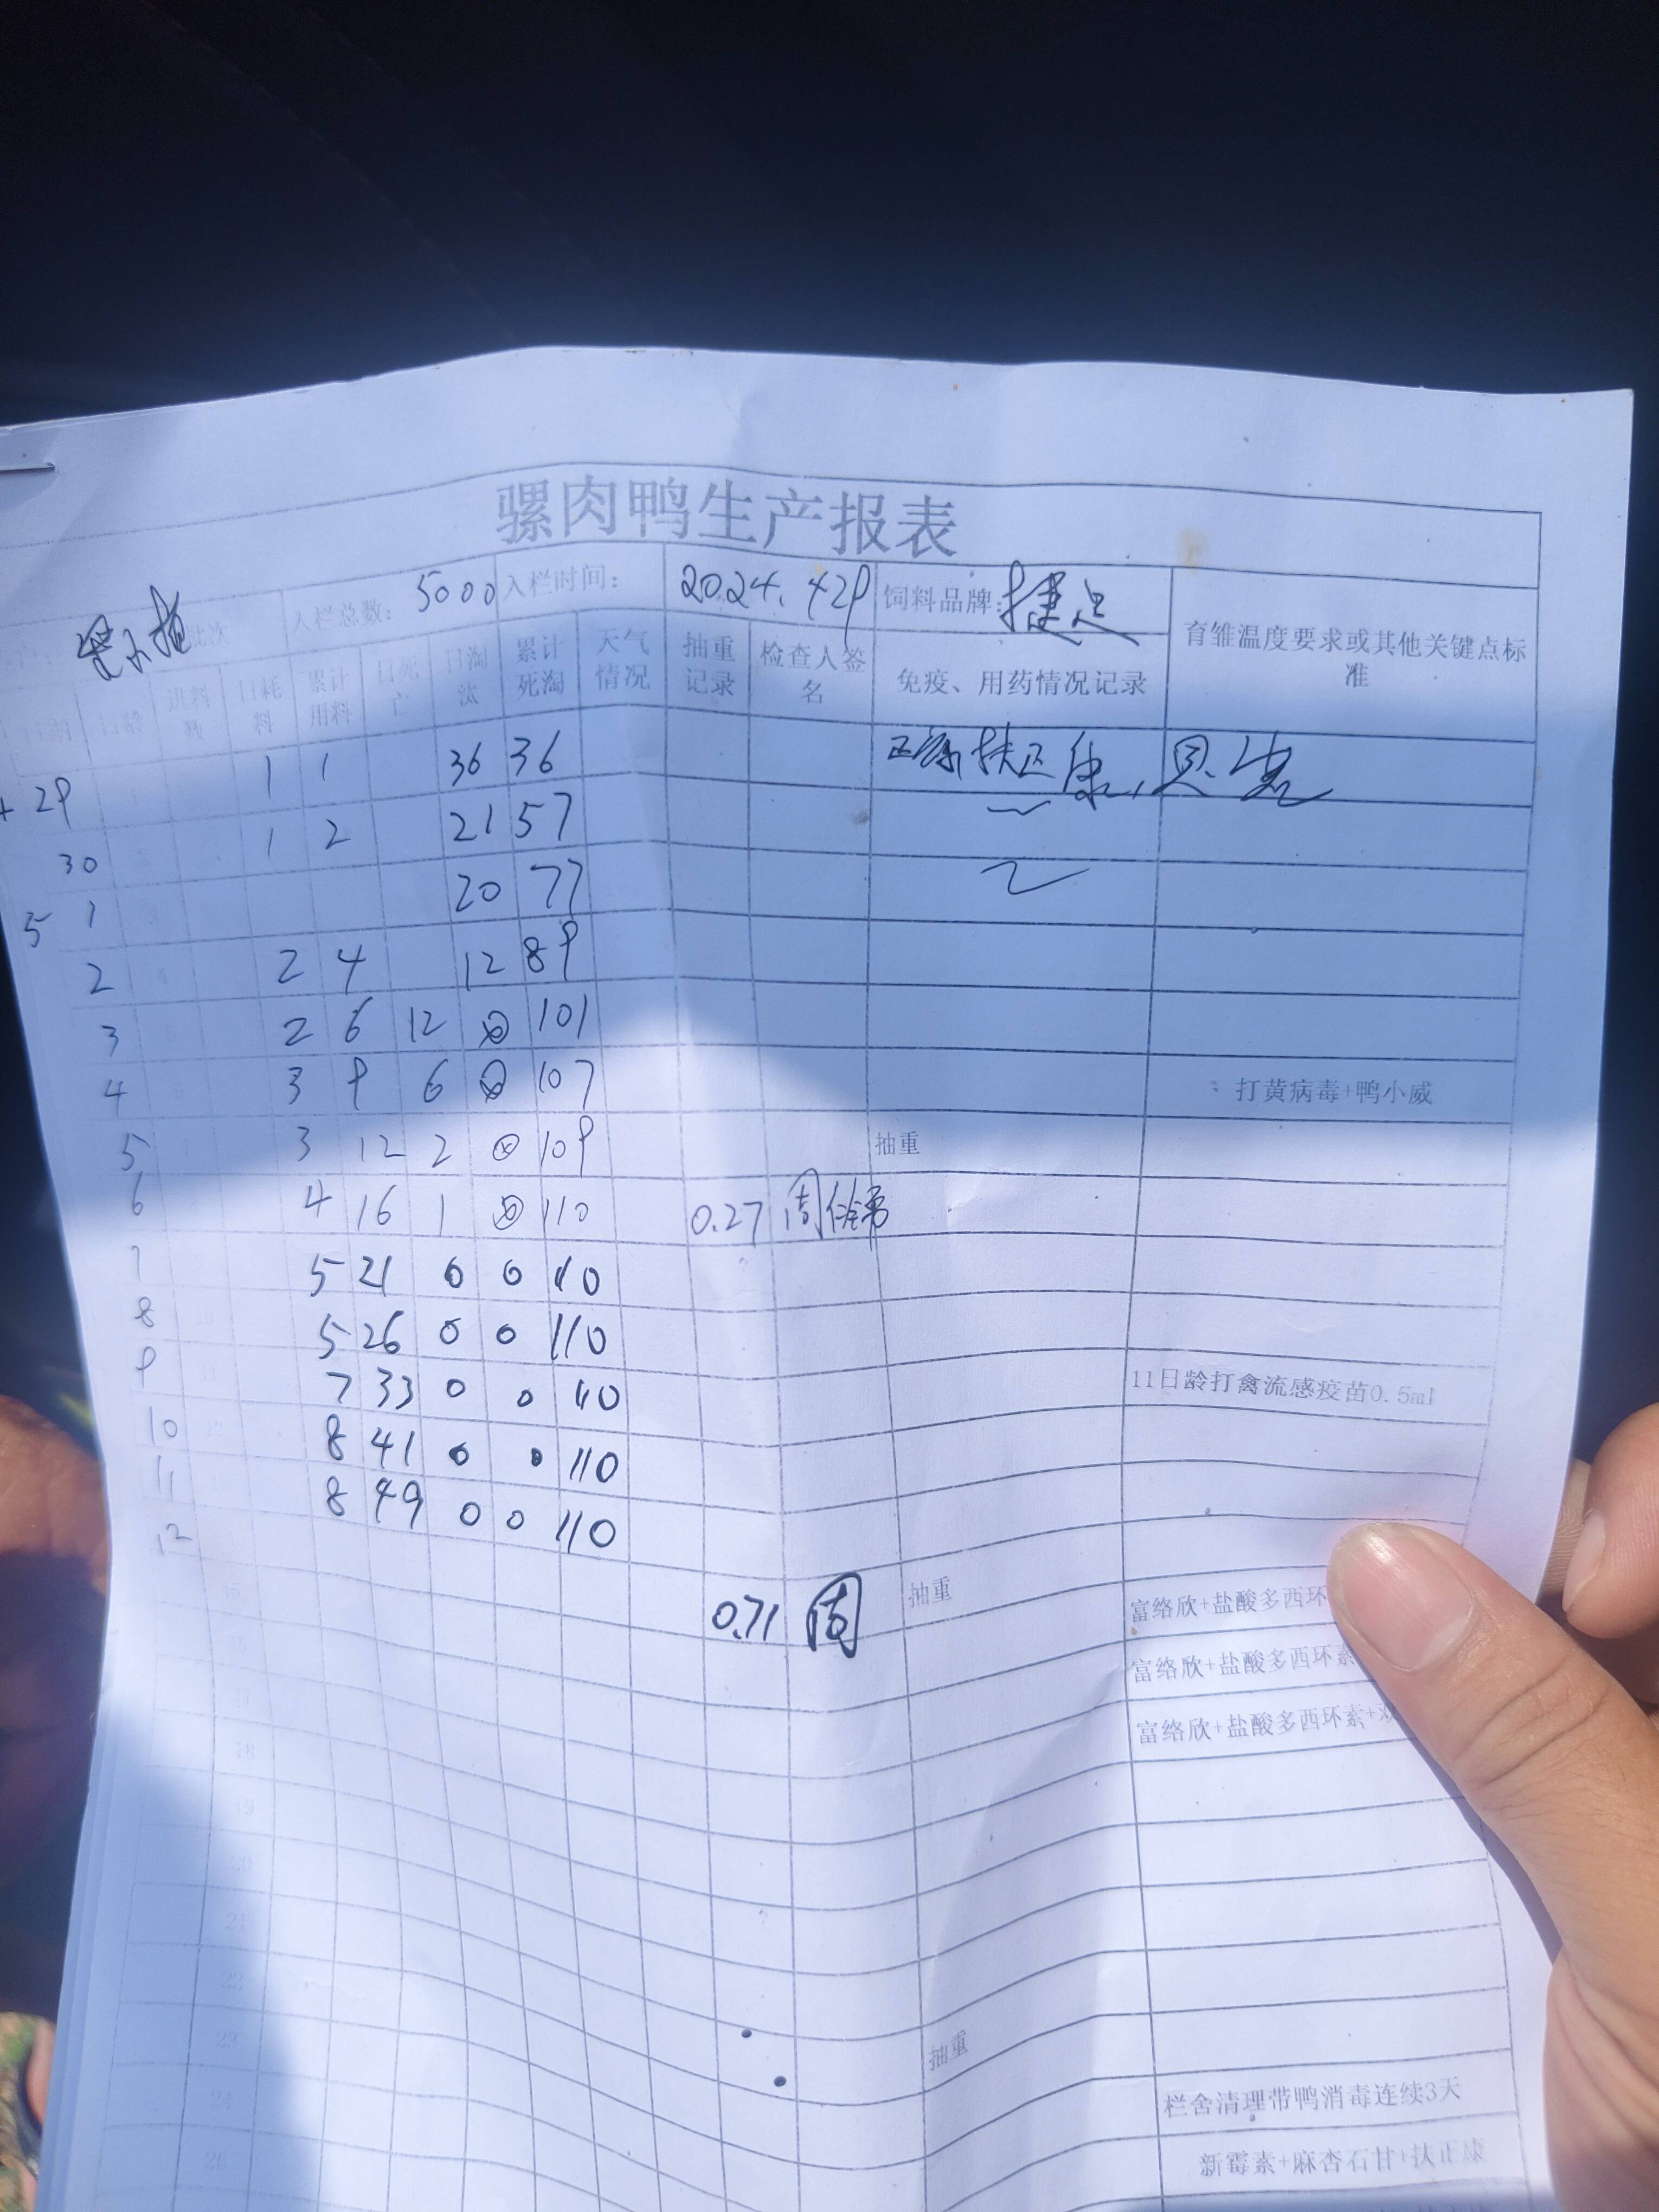 骡肉鸭生产报表
批次 入栏总数: 5000 入栏时间: 2024.429 饲料品牌: 育雏温度要求或其他关键点标准
日龄 进料数 日耗料 累计用料 日死亡 日淘汰 累计死淘 天气情况 抽重记录 检查人签名 免疫、用药情况记录
4 29 1 1 36 36 扶正康
30 1 2 21 57
5 1 20 77
2 2 4 12 89
3 2 6 12 101
4 3 9 6 107 打黄病毒+鸭小威
5 3 12 2 109 抽重
6 4 16 1 110 0.27 周
7 5 21 0 0 110
8 5 26 0 0 110
9 7 33 0 0 110 11日龄打禽流感疫苗0.5ml
10 8 41 0 0 110
11 8 49 0 0 110
12
0.71 周 抽重 富络欣+盐酸多西环
富络欣+盐酸多西环素
17 富络欣+盐酸多西环素+
18
19
20
21
22
23 抽重
24 栏舍清理带鸭消毒连续3天
新霉素+麻杏石甘+扶正康